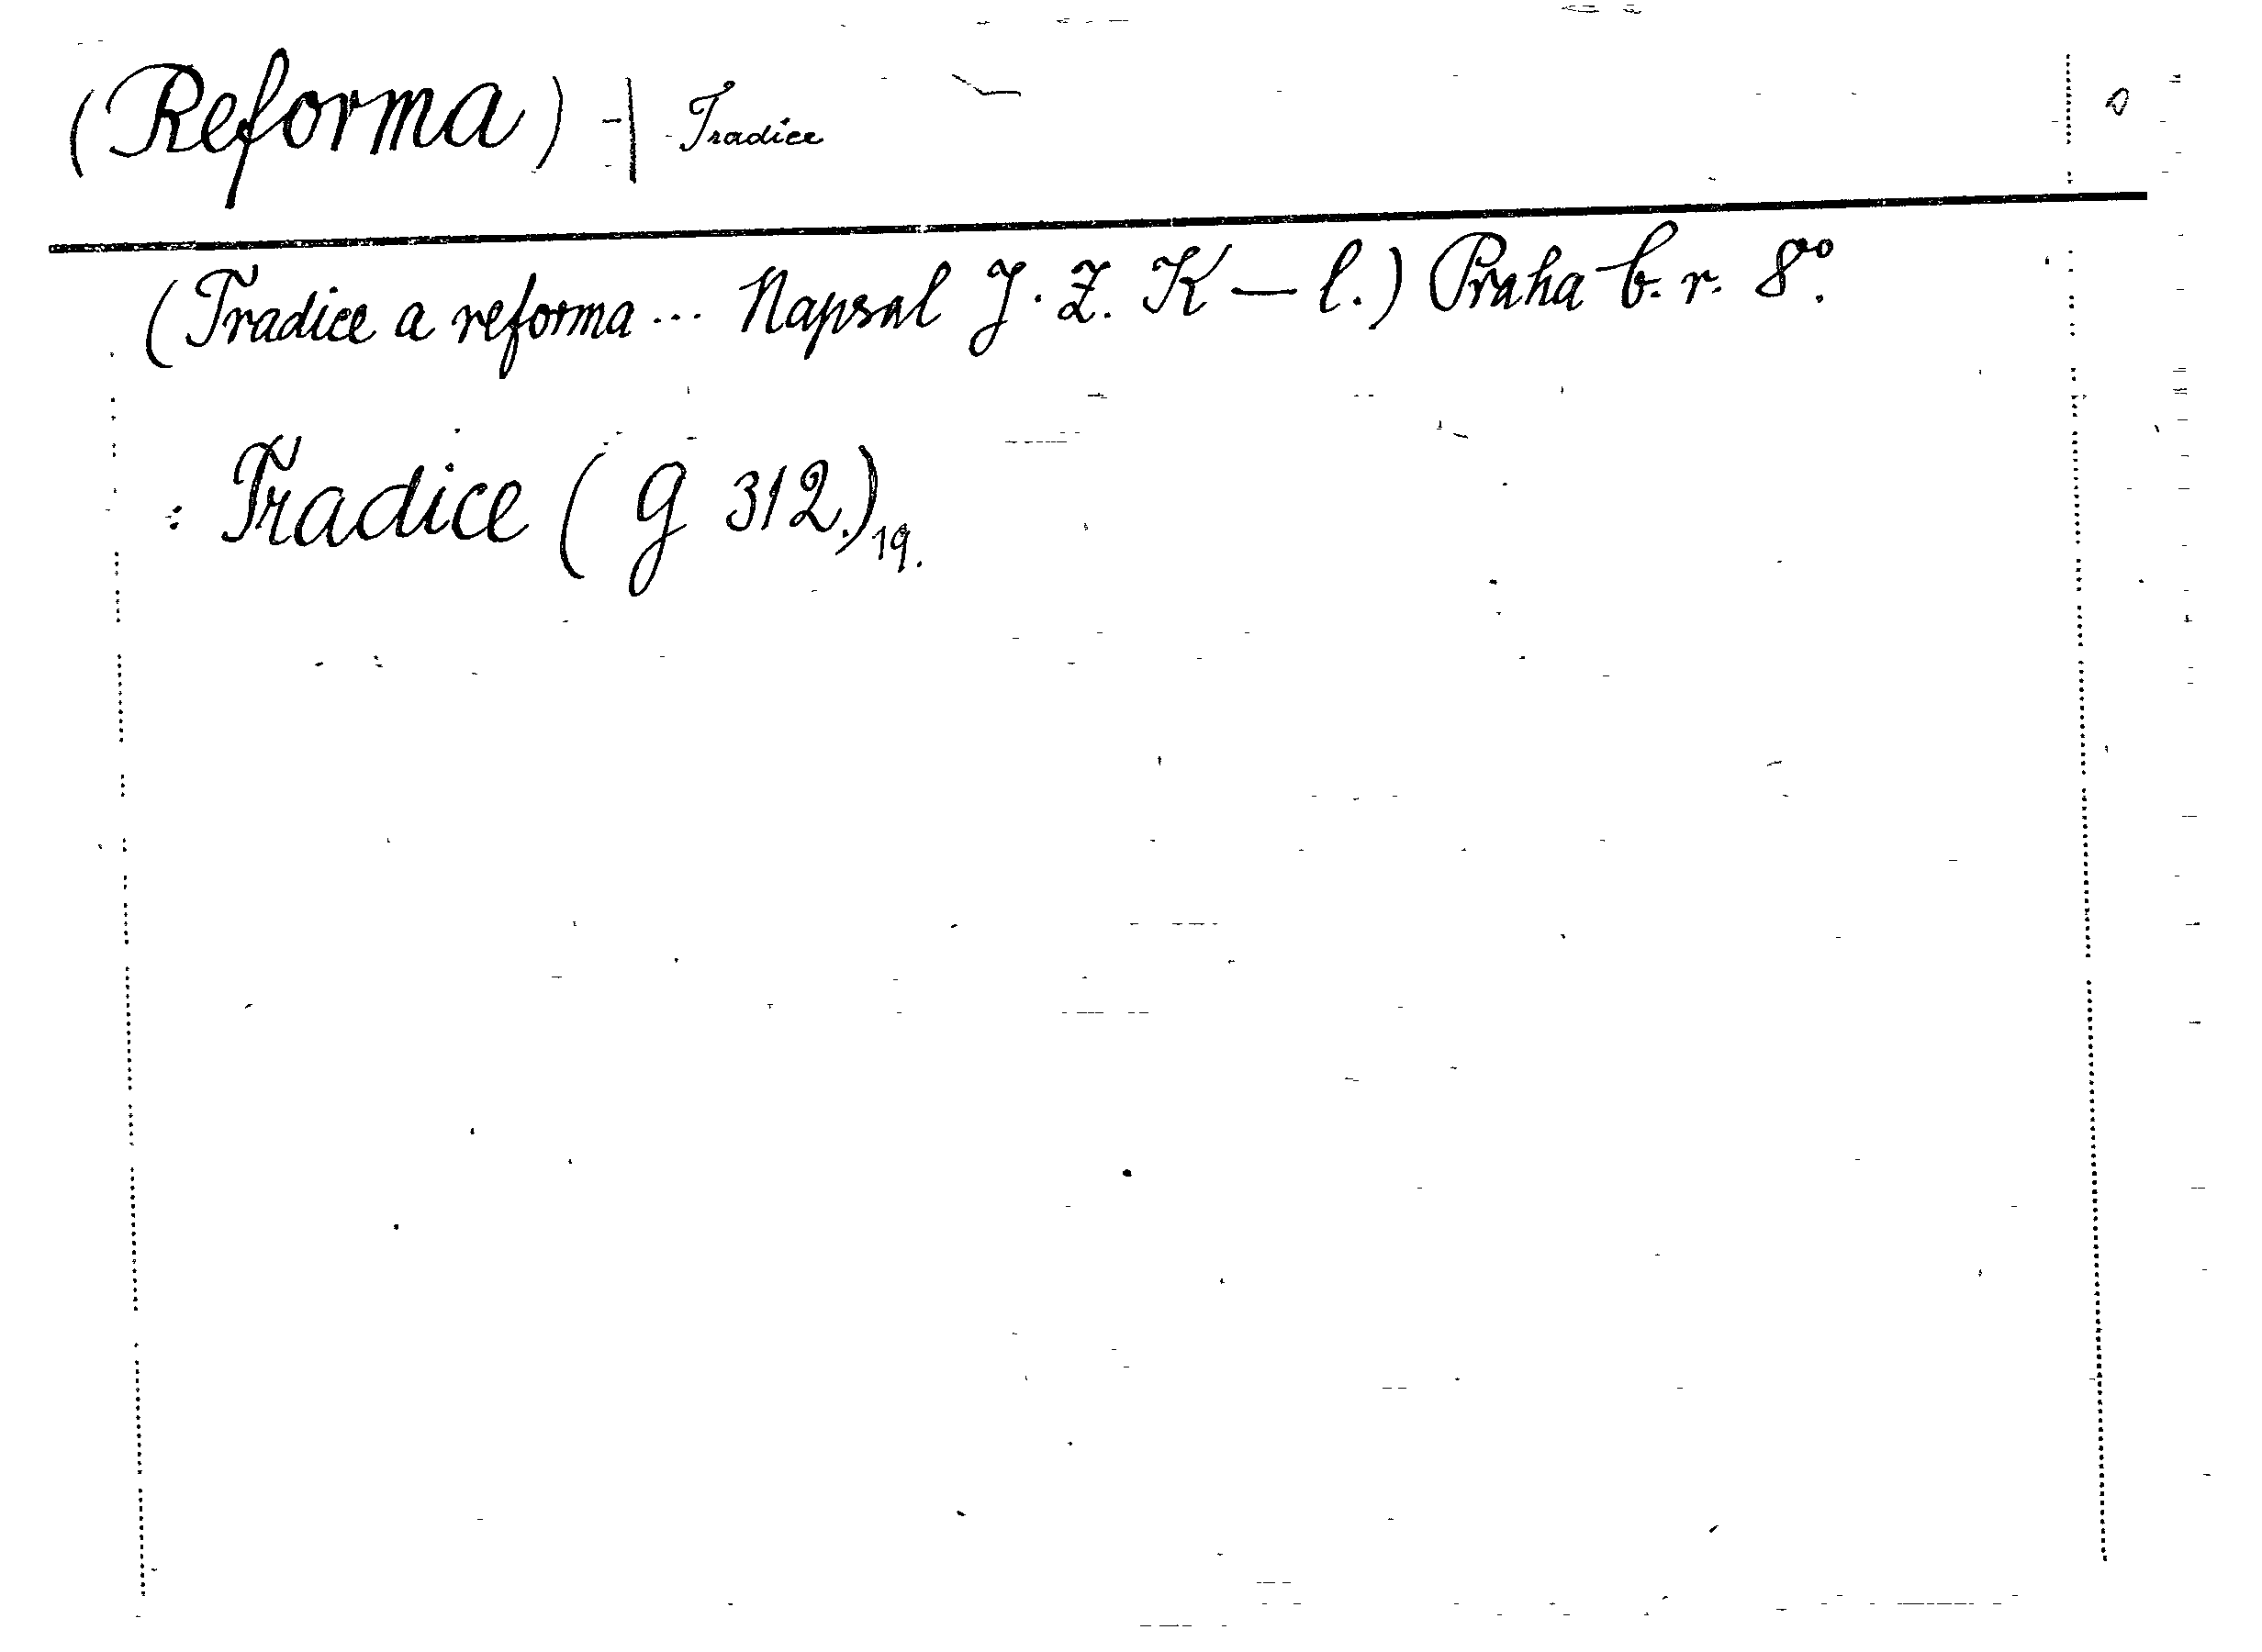 (Reforma) -| Tradice
(Tradice a reforma... Napsal J. Z. K — l.) Praha b. r. 8°.
: Tradice (g 312.)19.